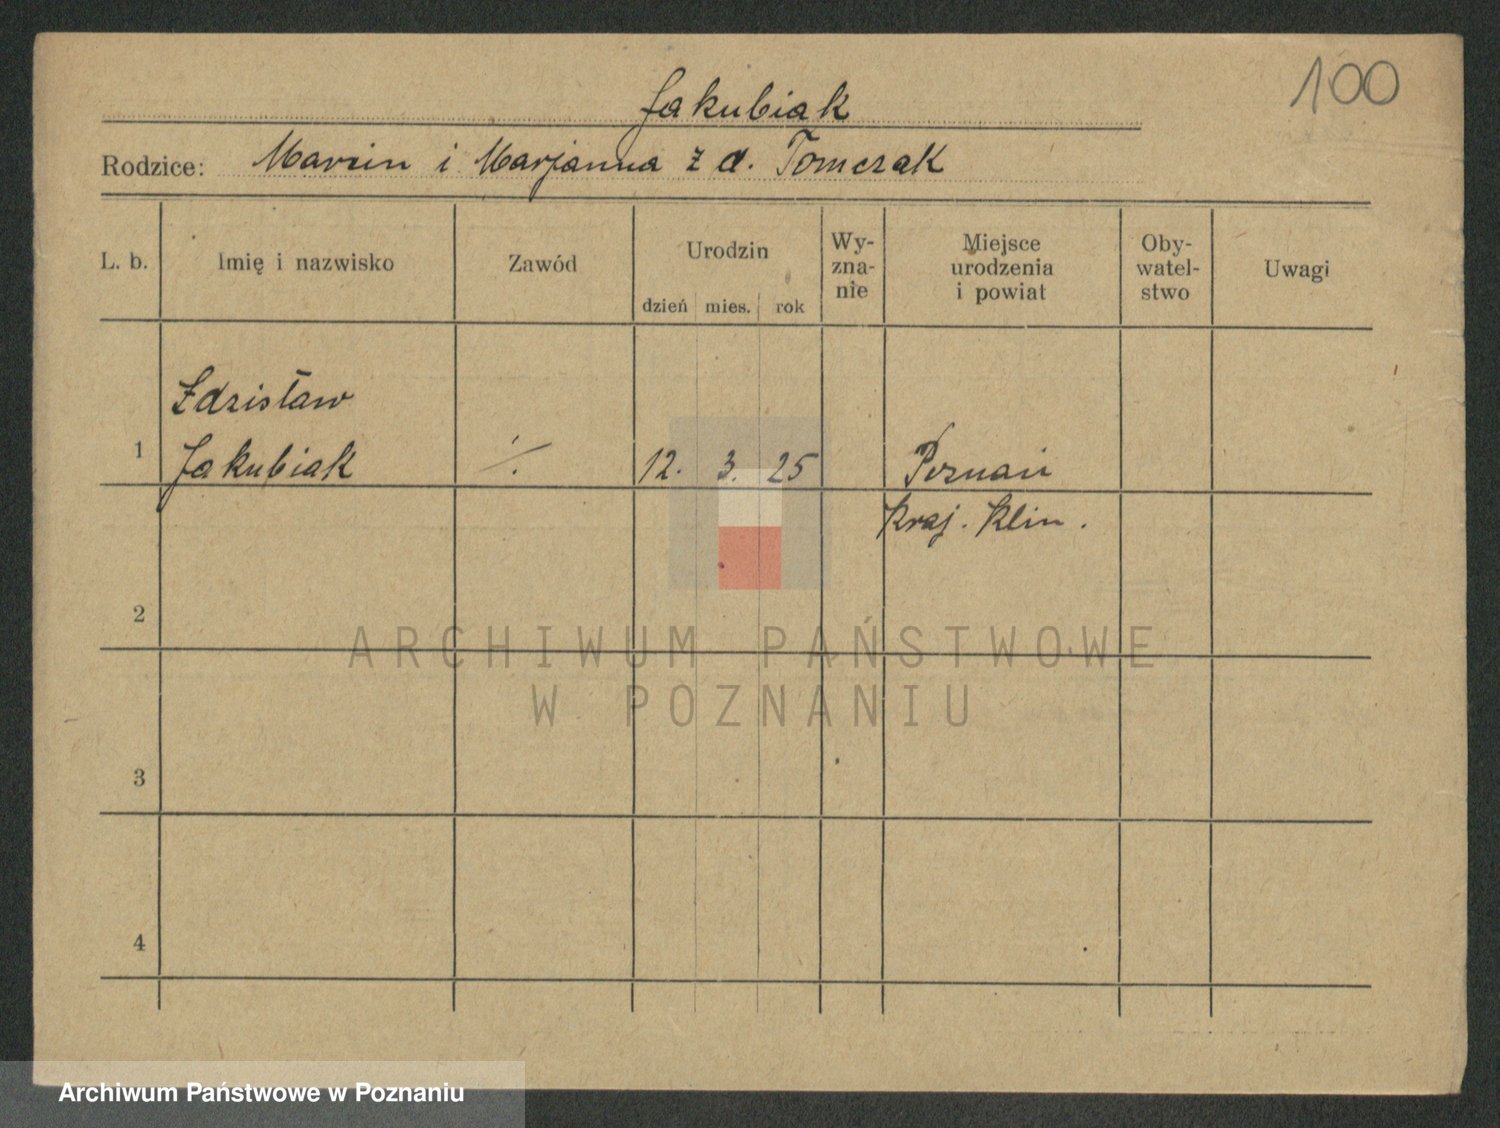 100
Jakubiak
Rodzice: Marcin i Marjanna z d. Tomczak
L. b. Imię i nazwisko Zawód Urodzin dzień mies. rok Wy-zna-nie Miejsce urodzenia i powiat Oby-watel-stwo Uwagi
Zdzisław
1 Jakubiak ./. 12. 3. 25 Poznań
Kraj. Klin.
2
ARCHIWUM PAŃSTWOWE
W POZNANIU
3
4
Archiwum Państwowe w Poznaniu